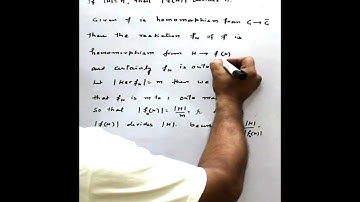 If |H| = n, that |f(H)| divides n.
Given f is homomorphism from G → G̅
then the restriction f_H of f is
homomorphism from H → f(H)
and certainly f_H is onto
Let |Ker f_H| = m then we
that f_H is m to 1 onto ma
So that |f_H(H)| = |H|/m
|f(H)| divides |H|. becau |H|/|f(H)|